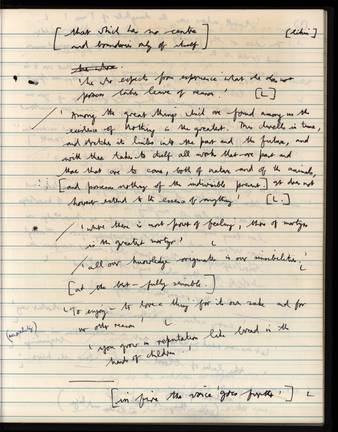 [ that which has no centre [ Lkn ]
and boundaries only of itself ]
'he who expects from experience what she does not
possess takes leave of reason.' [L]
'Among the great things which are found among us the
existence of Nothing is the greatest. This dwells in time,
and stretches its limbs into the past and the future, and
with these takes to itself all works that are past and
those that are to come, both of nature and of the animals,
[and possesses nothing of the indivisible present] yet does not
however extend to the essence of anything' [L.]
'where there is most power of feeling, there of martyrs
is the greatest martyr.' L
'all our knowledge originates in our sensibilities.' L
[at the best - fully sensible.]
'To enjoy - to love a thing for its own sake and for
no other reason.' L
(morality)
'you grow in reputation like bread in the
hands of children' L
[in fire the voice 'goes further'] L